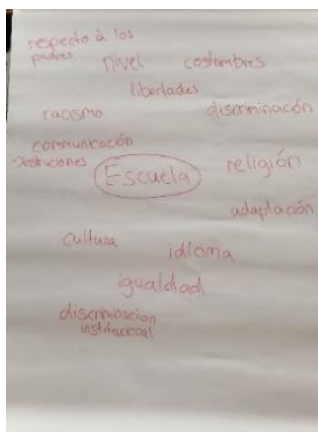 respecto à los
padres
nivel
costumbres
libertades
racismo
discriminación
communicación
Escuela
religión
adaptación
cultura
idioma
igualdad
discriminacion
institucional